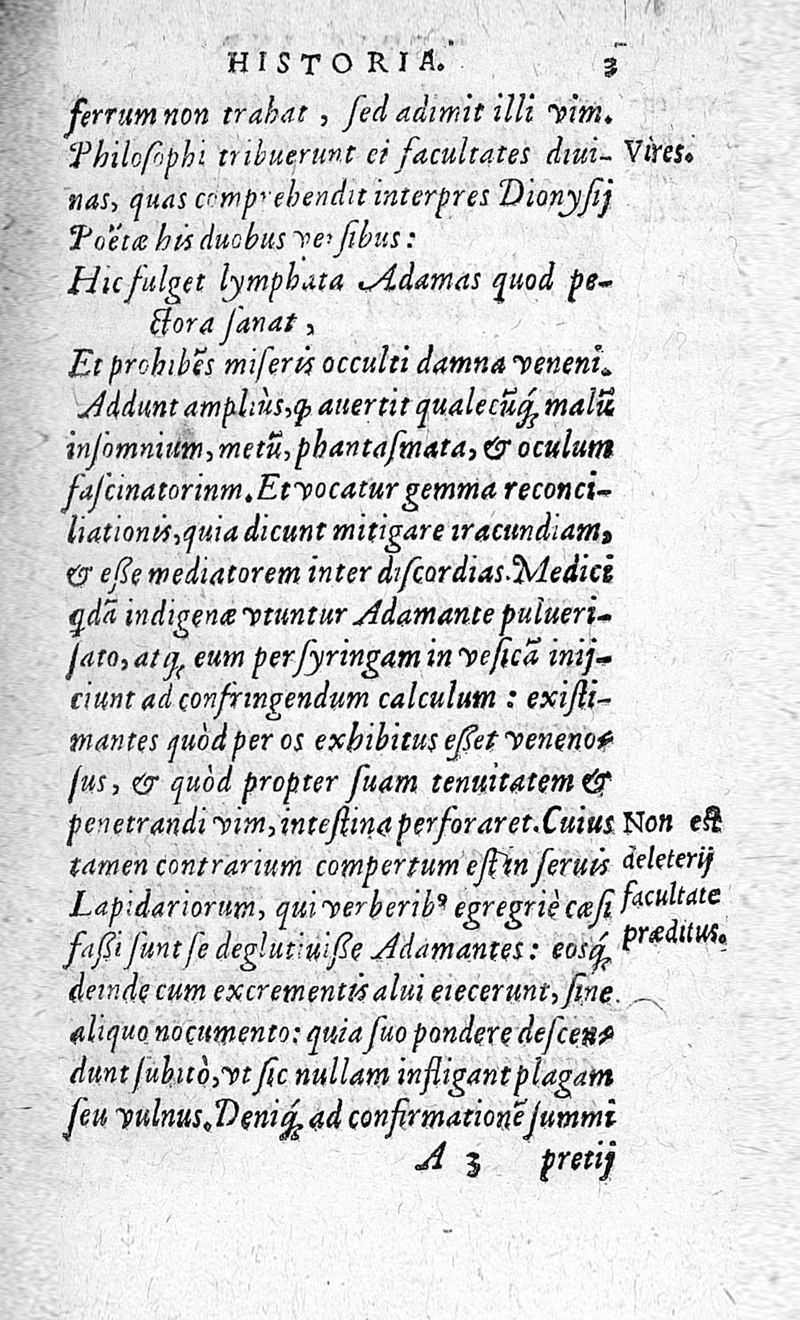 HISTORIA. 3
ferrum non trahat, ſed adimit illi vim.
Philoſophi tribuerunt ei facultates diui- Vires.
nas, quas comprehendit interpres Dionyſij
Poëtæ his duobus verſibus:
Hic fulget lymphata Adamas quod pe-
ctora ſanat,
Et prohibẽs miſeris occulti damna veneni.
Addunt ampliùs, ꝙ auertit qualecũq́; malũ
inſomnium, metũ, phantaſmata, & oculum
faſcinatorinm. Et vocatur gemma reconci-
liationis, quia dicunt mitigare iracundiam,
& eſſe mediatorem inter diſcordias. Medici
qdã indigenæ vtuntur Adamante pulueri-
ſato, atq; eum per ſyringam in veſicã inij-
ciunt ad confringendum calculum: exiſti-
mantes quòd per os exhibitus eſſet veneno-
ſus, & quòd propter ſuam tenuitatem &
penetrandi vim, inteſtina perforaret. Cuius Non eſt
tamen contrarium compertum eſt in ſeruis deleterij
Lapidariorum, qui verberibꝰ egregriè cæſi facultate
faſſi ſunt ſe deglutiuiſſe Adamantes: eosq́; præditus.
deinde cum excrementis alui eiecerunt, ſine
aliquo nocumento: quia ſuo pondere deſcen-
dunt ſubitò, vt ſic nullam infligant plagam
ſeu vulnus. Deniq́; ad confirmationẽ ſummi
A 3 pretij